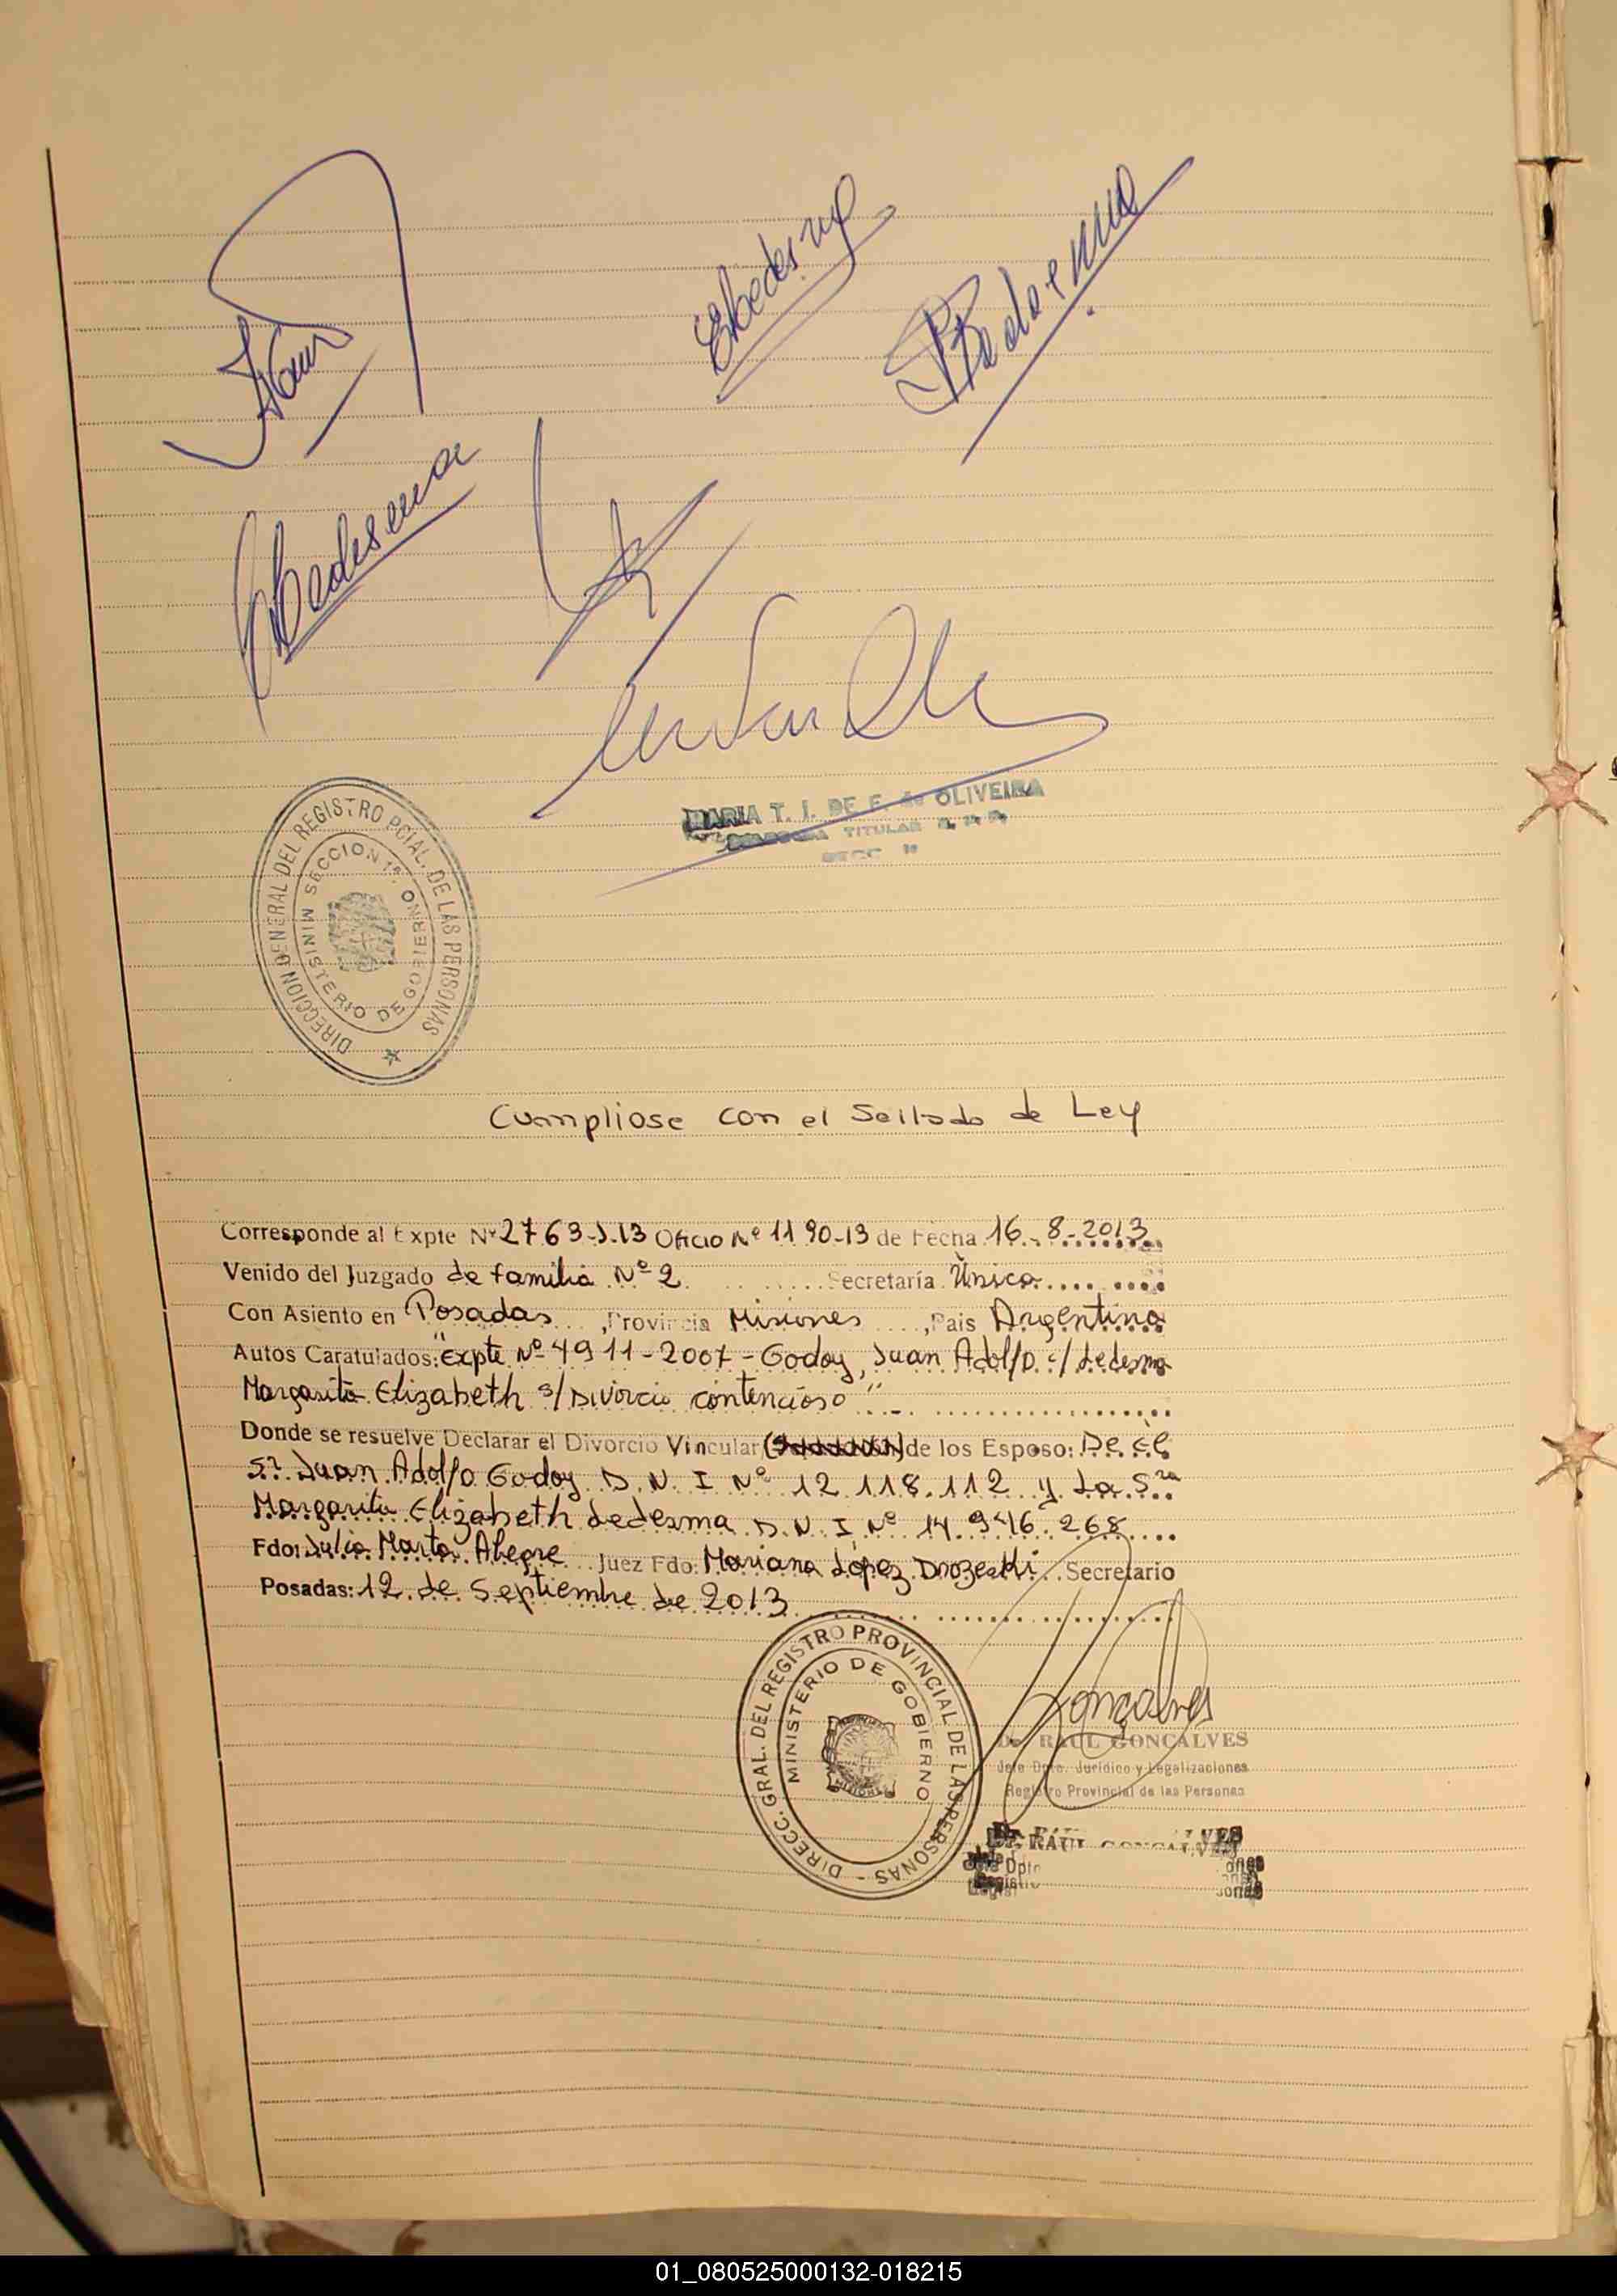 Ledesma
MARIA T. I. DE F. de OLIVEIRA
TITULAR
SECC
DIRECCION GENERAL DEL REGISTRO PCIAL. DE LAS PERSONAS
SECCION 1ª
MINISTERIO DE GOBIERNO
Cumpliose con el Sellado de Ley
Corresponde al Expte Nº 2763-J-13 Oficio Nº 1190-13 de Fecha 16-8-2013
Venido del Juzgado de familia Nº 2 Secretaría Única
Con Asiento en Posadas, Provincia Misiones, Pais Argentina
Autos Caratulados: "Expte Nº 4911-2007 - Godoy, Juan Adolfo c/ Ledesma
Margarita Elizabeth s/ Divorcio contencioso"
Donde se resuelve Declarar el Divorcio Vincular de los Esposo: De el
Sr. Juan Adolfo Godoy D.N.I Nº 12.118.112 y La Sra
Margarita Elizabeth Ledesma D.N.I Nº 14.946.268
Fdo: Julia Marta Alegre Juez Fdo: Mariana López Drozeski Secretario
Posadas: 12 de Septiembre de 2013
DIRECC. GRAL. DEL REGISTRO PROVINCIAL DE LAS PERSONAS -
MINISTERIO DE GOBIERNO
MISIONES
Gonçalves
Dr. RAUL GONCALVES
Jefe Dpto. Jurídico y Legalizaciones
Registro Provincial de las Personas
Dr. RAUL GONCALVES
Dpto
01_080525000132-018215